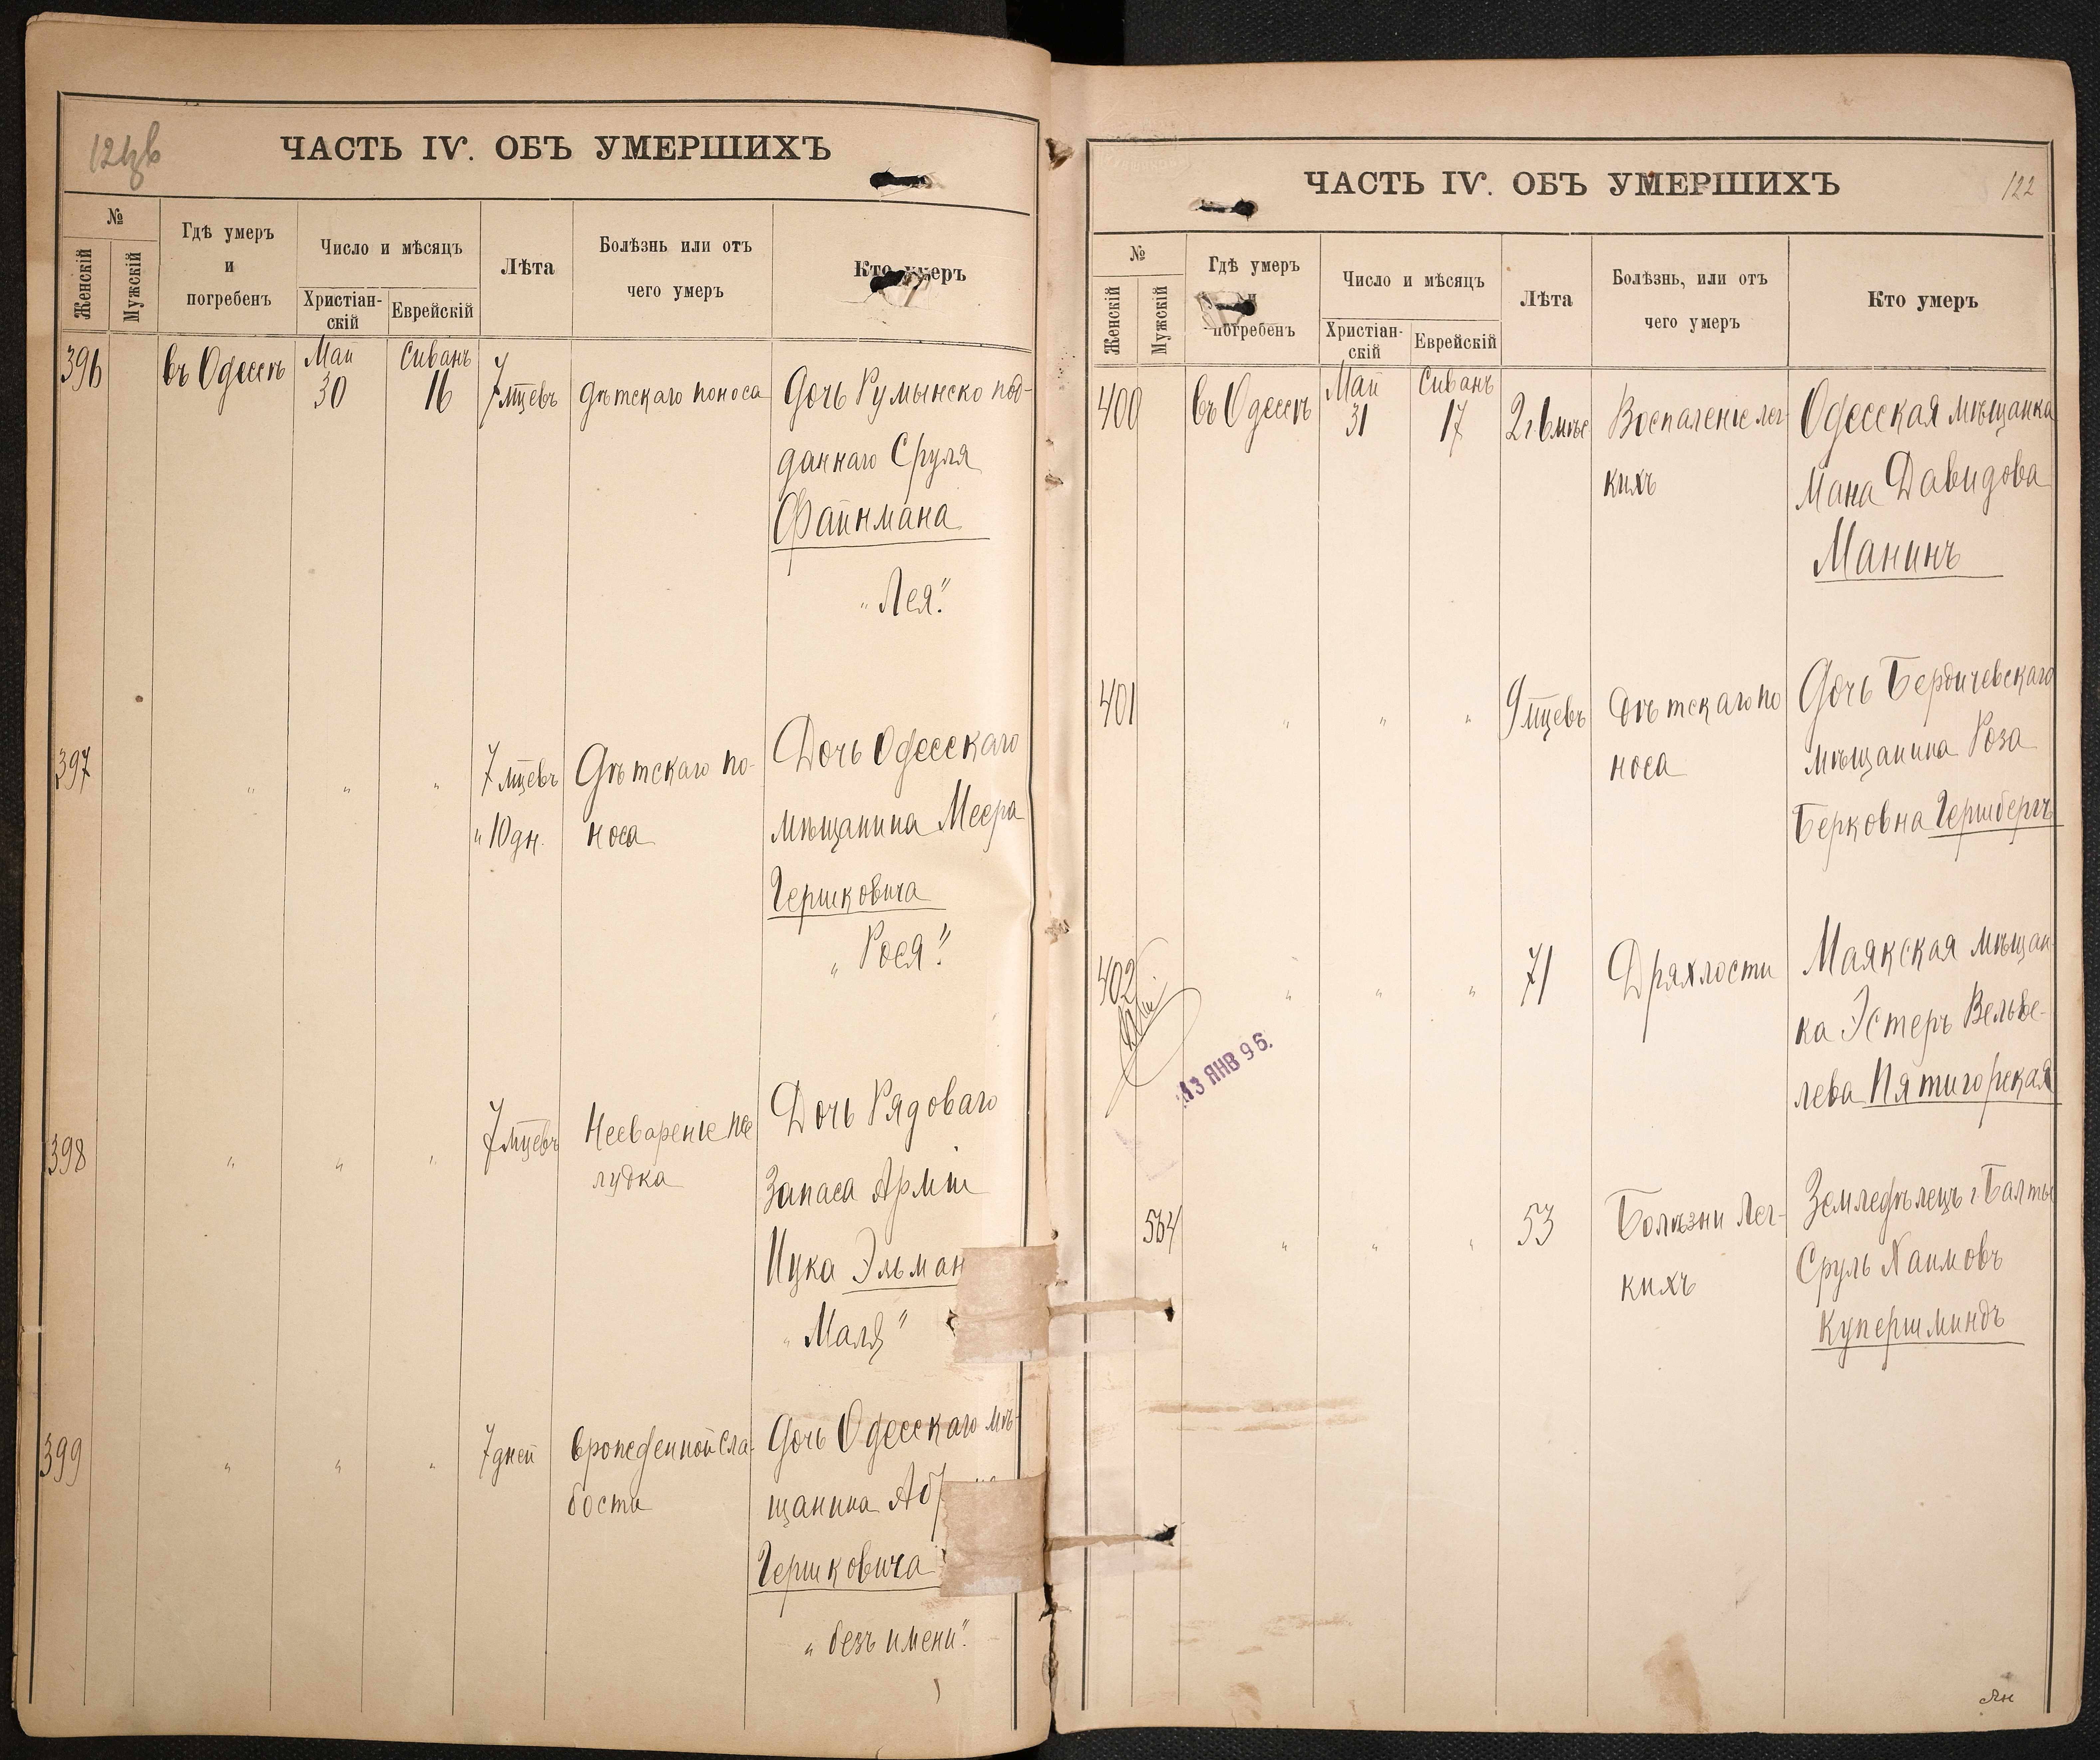 121зв
ЧАСТЬ IV. ОБЪ УМЕРШИХЪ
№
Женскій
Мужскій
Гдѣ умеръ
и
погребенъ
Число и мѣсяцъ
Христіан-
скій
Еврейскій
Лѣта
Болѣзнь или отъ
чего умеръ
Кто умеръ
396
въ Одессѣ
Май
30
Сиванъ
16
7 мцевъ
дѣтскаго поноса
Дочь Румынско под-
даннаго Сруля
Файнмана
"Лея".
397
"
"
"
7 мцевъ
" 10 дн.
Дѣтскаго по-
носа
Дочь Одесскаго
мѣщанина Меера
Гершковича
"Рося".
398
"
"
"
7 мцевъ
Несвареніе же
лудка
Дочь Рядоваго
Запаса Арміи
Ицка Эльман
"Маля"
399
"
"
"
7 дней
врожденной сла-
бости
Дочь Одесскаго мѣ-
щанина
Гершковича
"безъ имени".
ЧАСТЬ IV. ОБЪ УМЕРШИХЪ
122
№
Женскій
Мужскій
Гдѣ умеръ
и
погребенъ
Число и мѣсяцъ
Христіан-
скій
Еврейскій
Лѣта
Болѣзнь, или отъ
чего умеръ
Кто умеръ
400
въ Одессѣ
Май
31
Сиванъ
17
2 г 6 мѣс
Воспаленіе лег-
кихъ
Одесская мѣщанка
Мана Давидова
Манинъ
401
"
"
"
9 мцевъ
Дѣтскаго по
носа
Дочь Бердичевскаго
мѣщанина Роза
Берковна Гершбергъ
402
"
"
"
71
Дряхлости
Маякская мѣщан-
ка Эстеръ Вельве-
лева Пятигорская
13 ЯНВ 96.
564
"
"
"
53
Болѣзни Лег-
кихъ
Земледѣлецъ г. Балты
Сруль Хаимовъ
Купершмидъ